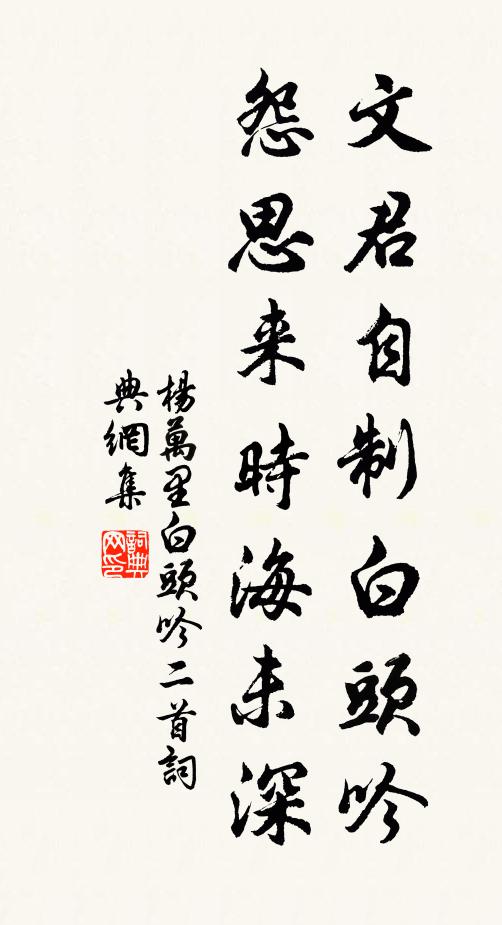 文君自制白頭吟
怨思来時海未深
楊萬里白頭吟二首詞
典網集
詞典
网印